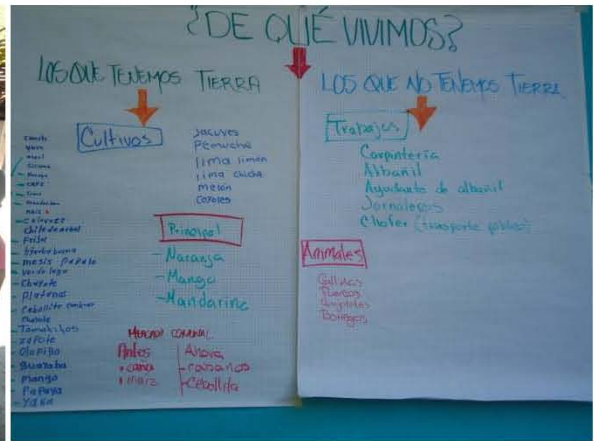 ¿DE QUÉ VIVIMOS?
LOS QUE TENEMOS TIERRA
Cultivos
Camote
yuca
nopal
- cafe
- Mandarina
- maiz
- colorines
chile de arbol
- frijol
- hierbabuena
- verdolaga
- Chayote
- platanos
- Cebollita
- zapote
- Guayaba
- mango
- Papaya
- Yuca
Jacuves
Pemuche
lima limon
lima chicha
melón
Coyoles
Principal
- Naranja
- Mango
- Mandarina
MERCADO COMUNAL
Antes
• caña
• maiz
Ahora
- rabanos
- Cebollita
LOS QUE NO TENEMOS TIERRA
Trabajos
Carpintería
Albañil
Ayudante de albañil
Jornaleros
Chofer (transporte público)
Animales
Gallinas
Puercos
Borregos